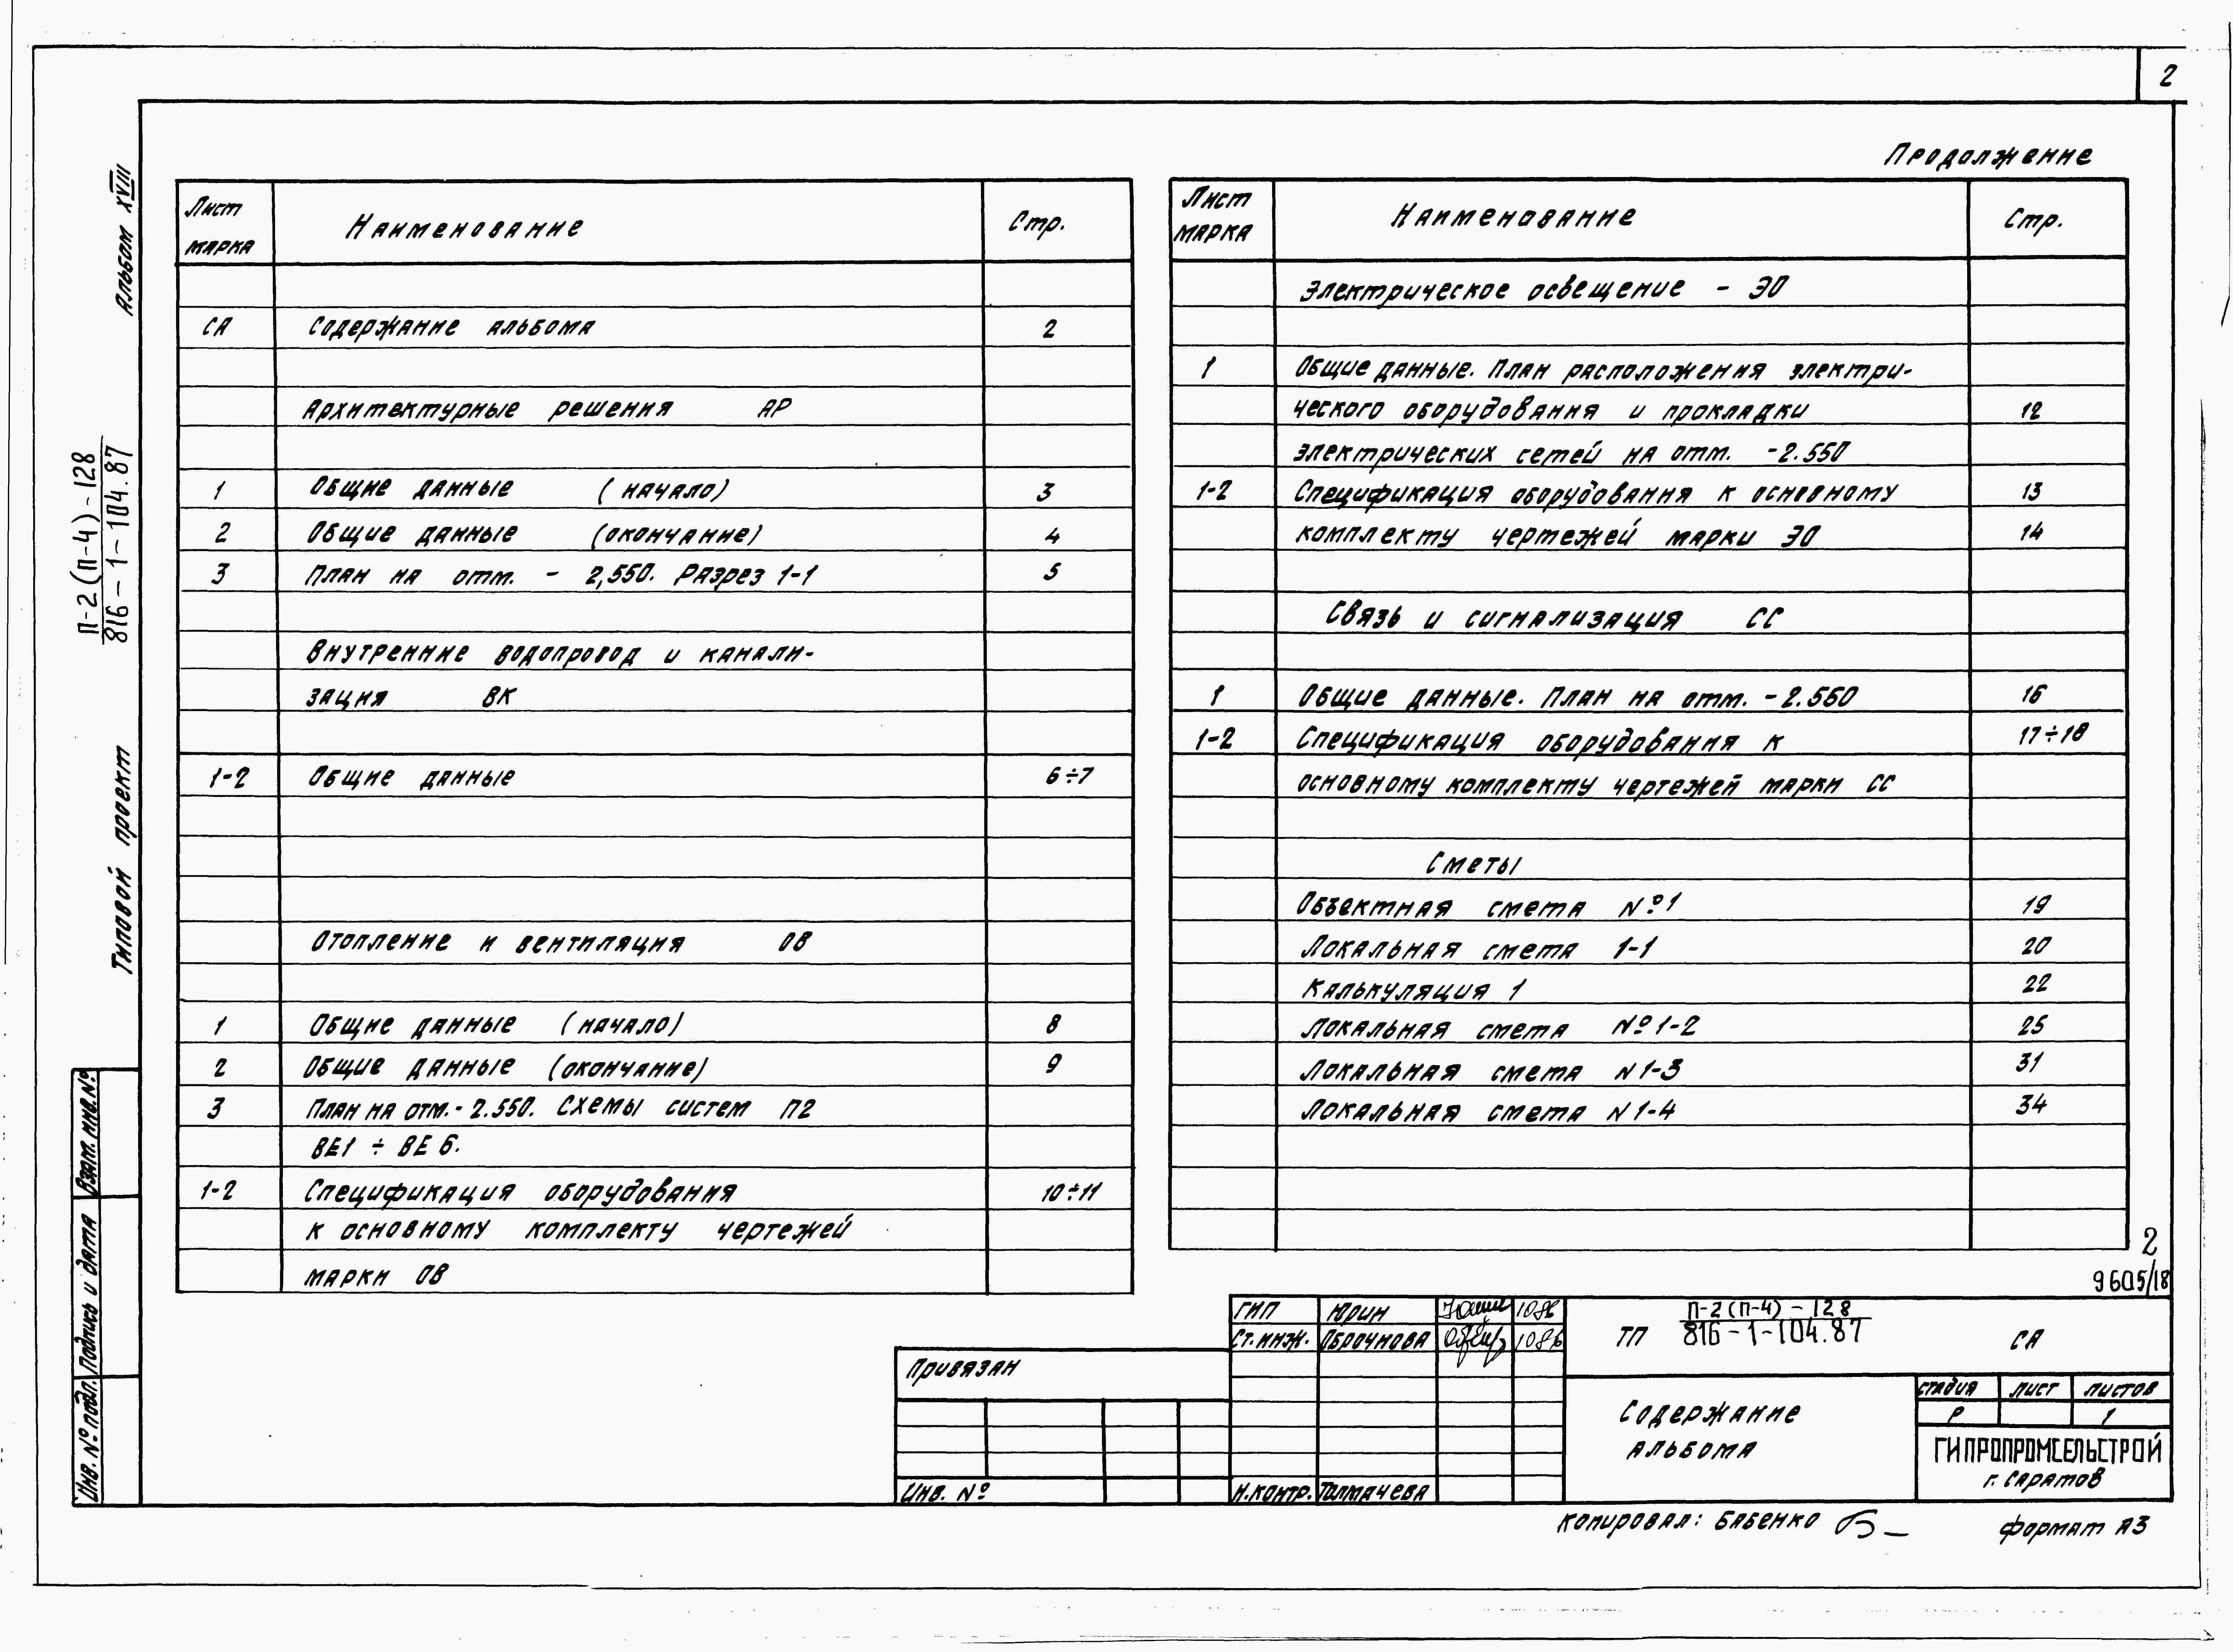 2
Продолжение
Альбом XVIII
П-2(П-4)-128
816-1-104.87
Типовой проект
Лист марка Наименование Стр.
СА Содержание альбома 2
Архитектурные решения АР
1 Общие данные (начало) 3
2 Общие данные (окончание) 4
3 План на отм. - 2,550. Разрез 1-1 5
Внутренние водопровод и канали-
зация ВК
1-2 Общие данные 6÷7
Отопление и вентиляция ОВ
1 Общие данные (начало) 8
2 Общие данные (окончание) 9
3 План на отм.-2.550. Схемы систем П2
ВЕ1 ÷ ВЕ6.
1-2 Спецификация оборудования 10÷11
к основному комплекту чертежей
марки ОВ
Лист марка Наименование Стр.
Электрическое освещение - ЭО
1 Общие данные. План расположения электри-
ческого оборудования и прокладки 12
электрических сетей на отм. -2.550
1-2 Спецификация оборудования к основному 13
комплекту чертежей марки ЭО 14
Связь и сигнализация СС
1 Общие данные. План на отм. -2.550 16
1-2 Спецификация оборудования к 17÷18
основному комплекту чертежей марки СС
Сметы
Объектная смета №1 19
Локальная смета 1-1 20
Калькуляция 1 22
Локальная смета №1-2 25
Локальная смета N1-3 31
Локальная смета N1-4 34
2
9605/18
Взам. инв. №
Подпись и дата
Инв. № подл.
Привязан
Инв. №
ГИП Юрин 1086
Ст. инж. Оброчнова 1086
Н.контр. Толмачева
ТП П-2(П-4)-128
816-1-104.87 СА
Содержание
альбома
стадия лист листов
Р 1
ГИПРОПРОМСЕЛЬСТРОЙ
г. Саратов
Копировал: Бабенко
Формат А3